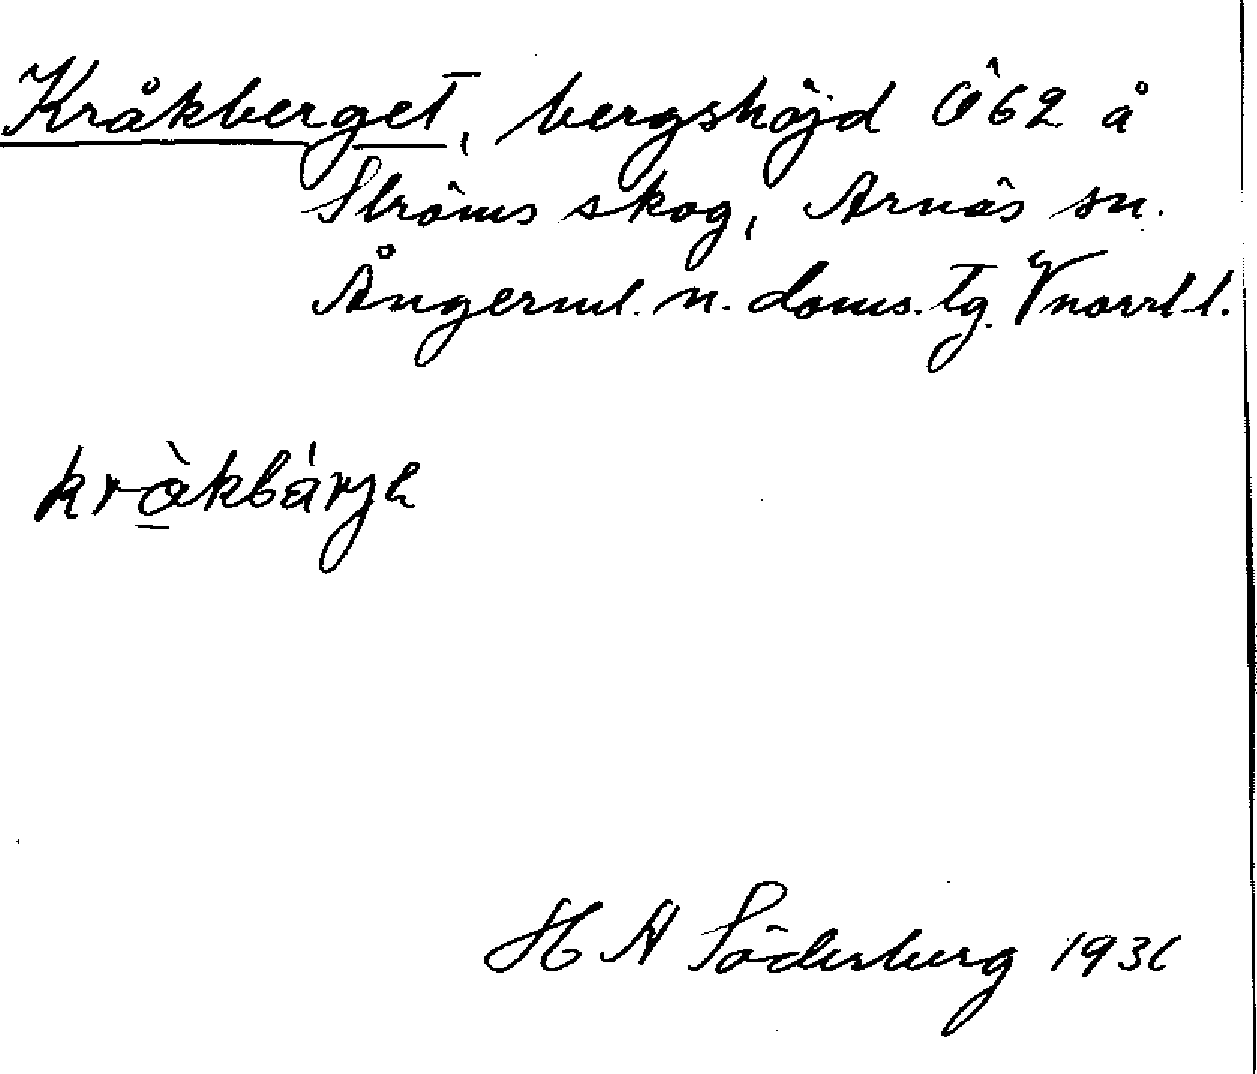 Kråkberget, bergshöjd Ö62 å
Ströms skog, Arnäs sn.
Ångerml. n. doms. tg. Vnorrl l.
kråkbárje
H A Söderberg 1931